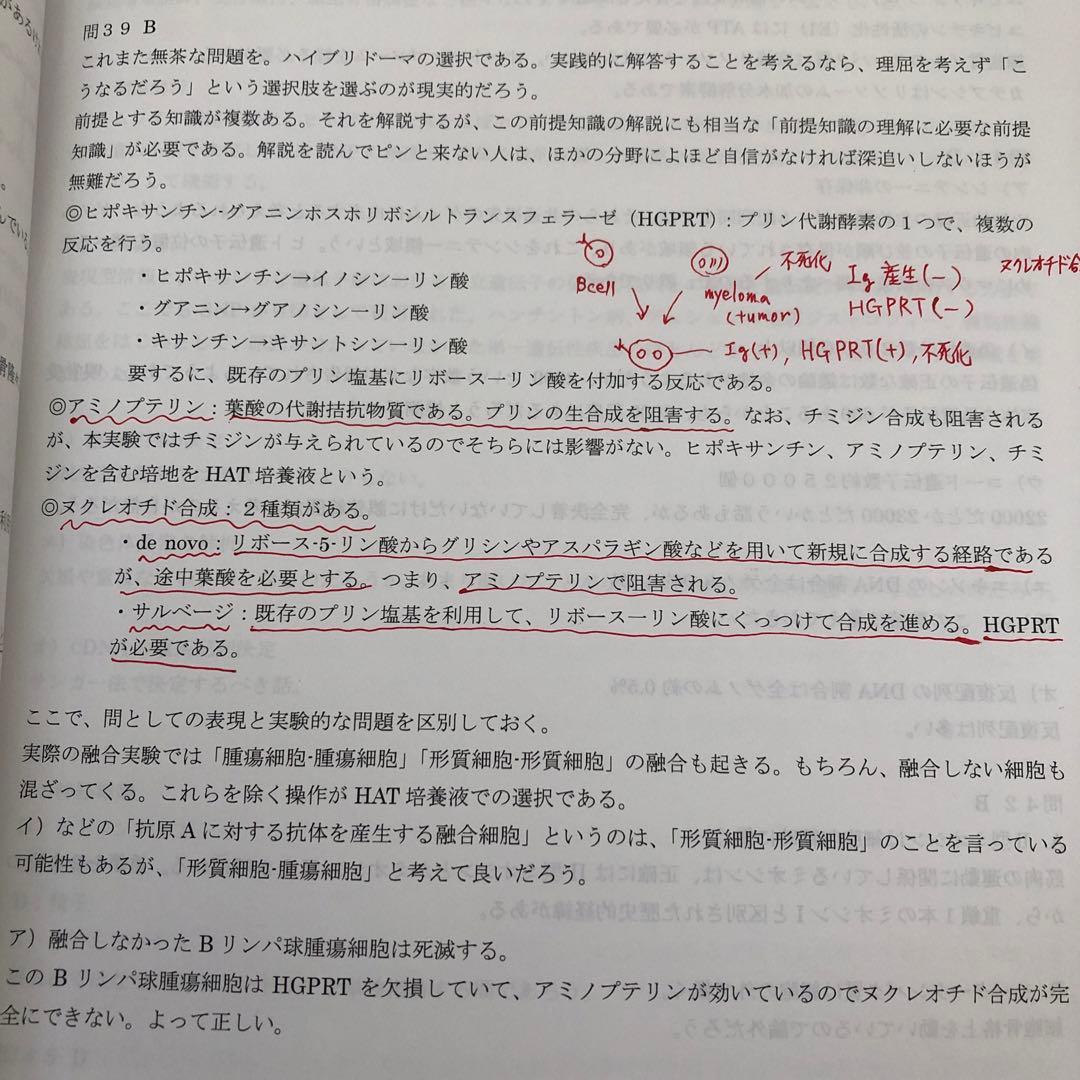 問39 B
これまた無茶な問題を。ハイブリドーマの選択である。実践的に解答することを考えるなら、理屈を考えず「こ
うなるだろう」という選択肢を選ぶのが現実的だろう。
前提とする知識が複数ある。それを解説するが、この前提知識の解説にも相当な「前提知識の理解に必要な前提
知識」が必要である。解説を読んでピンと来ない人は、ほかの分野によほど自信がなければ深追いしないほうが
無難だろう。
◎ヒポキサンチン‐グアニンホスホリボシルトランスフェラーゼ（HGPRT）：プリン代謝酵素の１つで、複数の
反応を行う。
・ヒポキサンチン→イノシンーリン酸
・グアニン→グアノシンーリン酸
・キサンチン→キサントシンーリン酸
Bcell
myeloma
(tumor)
不死化
Ig 産生(-)
HGPRT(-)
ヌクレオチド合
Ig(+), HGPRT(+), 不死化
要するに、既存のプリン塩基にリボースーリン酸を付加する反応である。
◎アミノプテリン：葉酸の代謝拮抗物質である。プリンの生合成を阻害する。なお、チミジン合成も阻害される
が、本実験ではチミジンが与えられているのでそちらには影響がない。ヒポキサンチン、アミノプテリン、チミ
ジンを含む培地を HAT 培養液という。
◎ヌクレオチド合成：２種類がある。
・de novo：リボース-5-リン酸からグリシンやアスパラギン酸などを用いて新規に合成する経路である
が、途中葉酸を必要とする。つまり、アミノプテリンで阻害される。
・サルベージ：既存のプリン塩基を利用して、リボースーリン酸にくっつけて合成を進める。HGPRT
が必要である。
ここで、問としての表現と実験的な問題を区別しておく。
実際の融合実験では「腫瘍細胞‐腫瘍細胞」「形質細胞‐形質細胞」の融合も起きる。もちろん、融合しない細胞も
混ざってくる。これらを除く操作が HAT 培養液での選択である。
イ）などの「抗原 A に対する抗体を産生する融合細胞」というのは、「形質細胞‐形質細胞」のことを言っている
可能性もあるが、「形質細胞‐腫瘍細胞」と考えて良いだろう。
ア）融合しなかった B リンパ球腫瘍細胞は死滅する。
この B リンパ球腫瘍細胞は HGPRT を欠損していて、アミノプテリンが効いているのでヌクレオチド合成が完
全にできない。よって正しい。